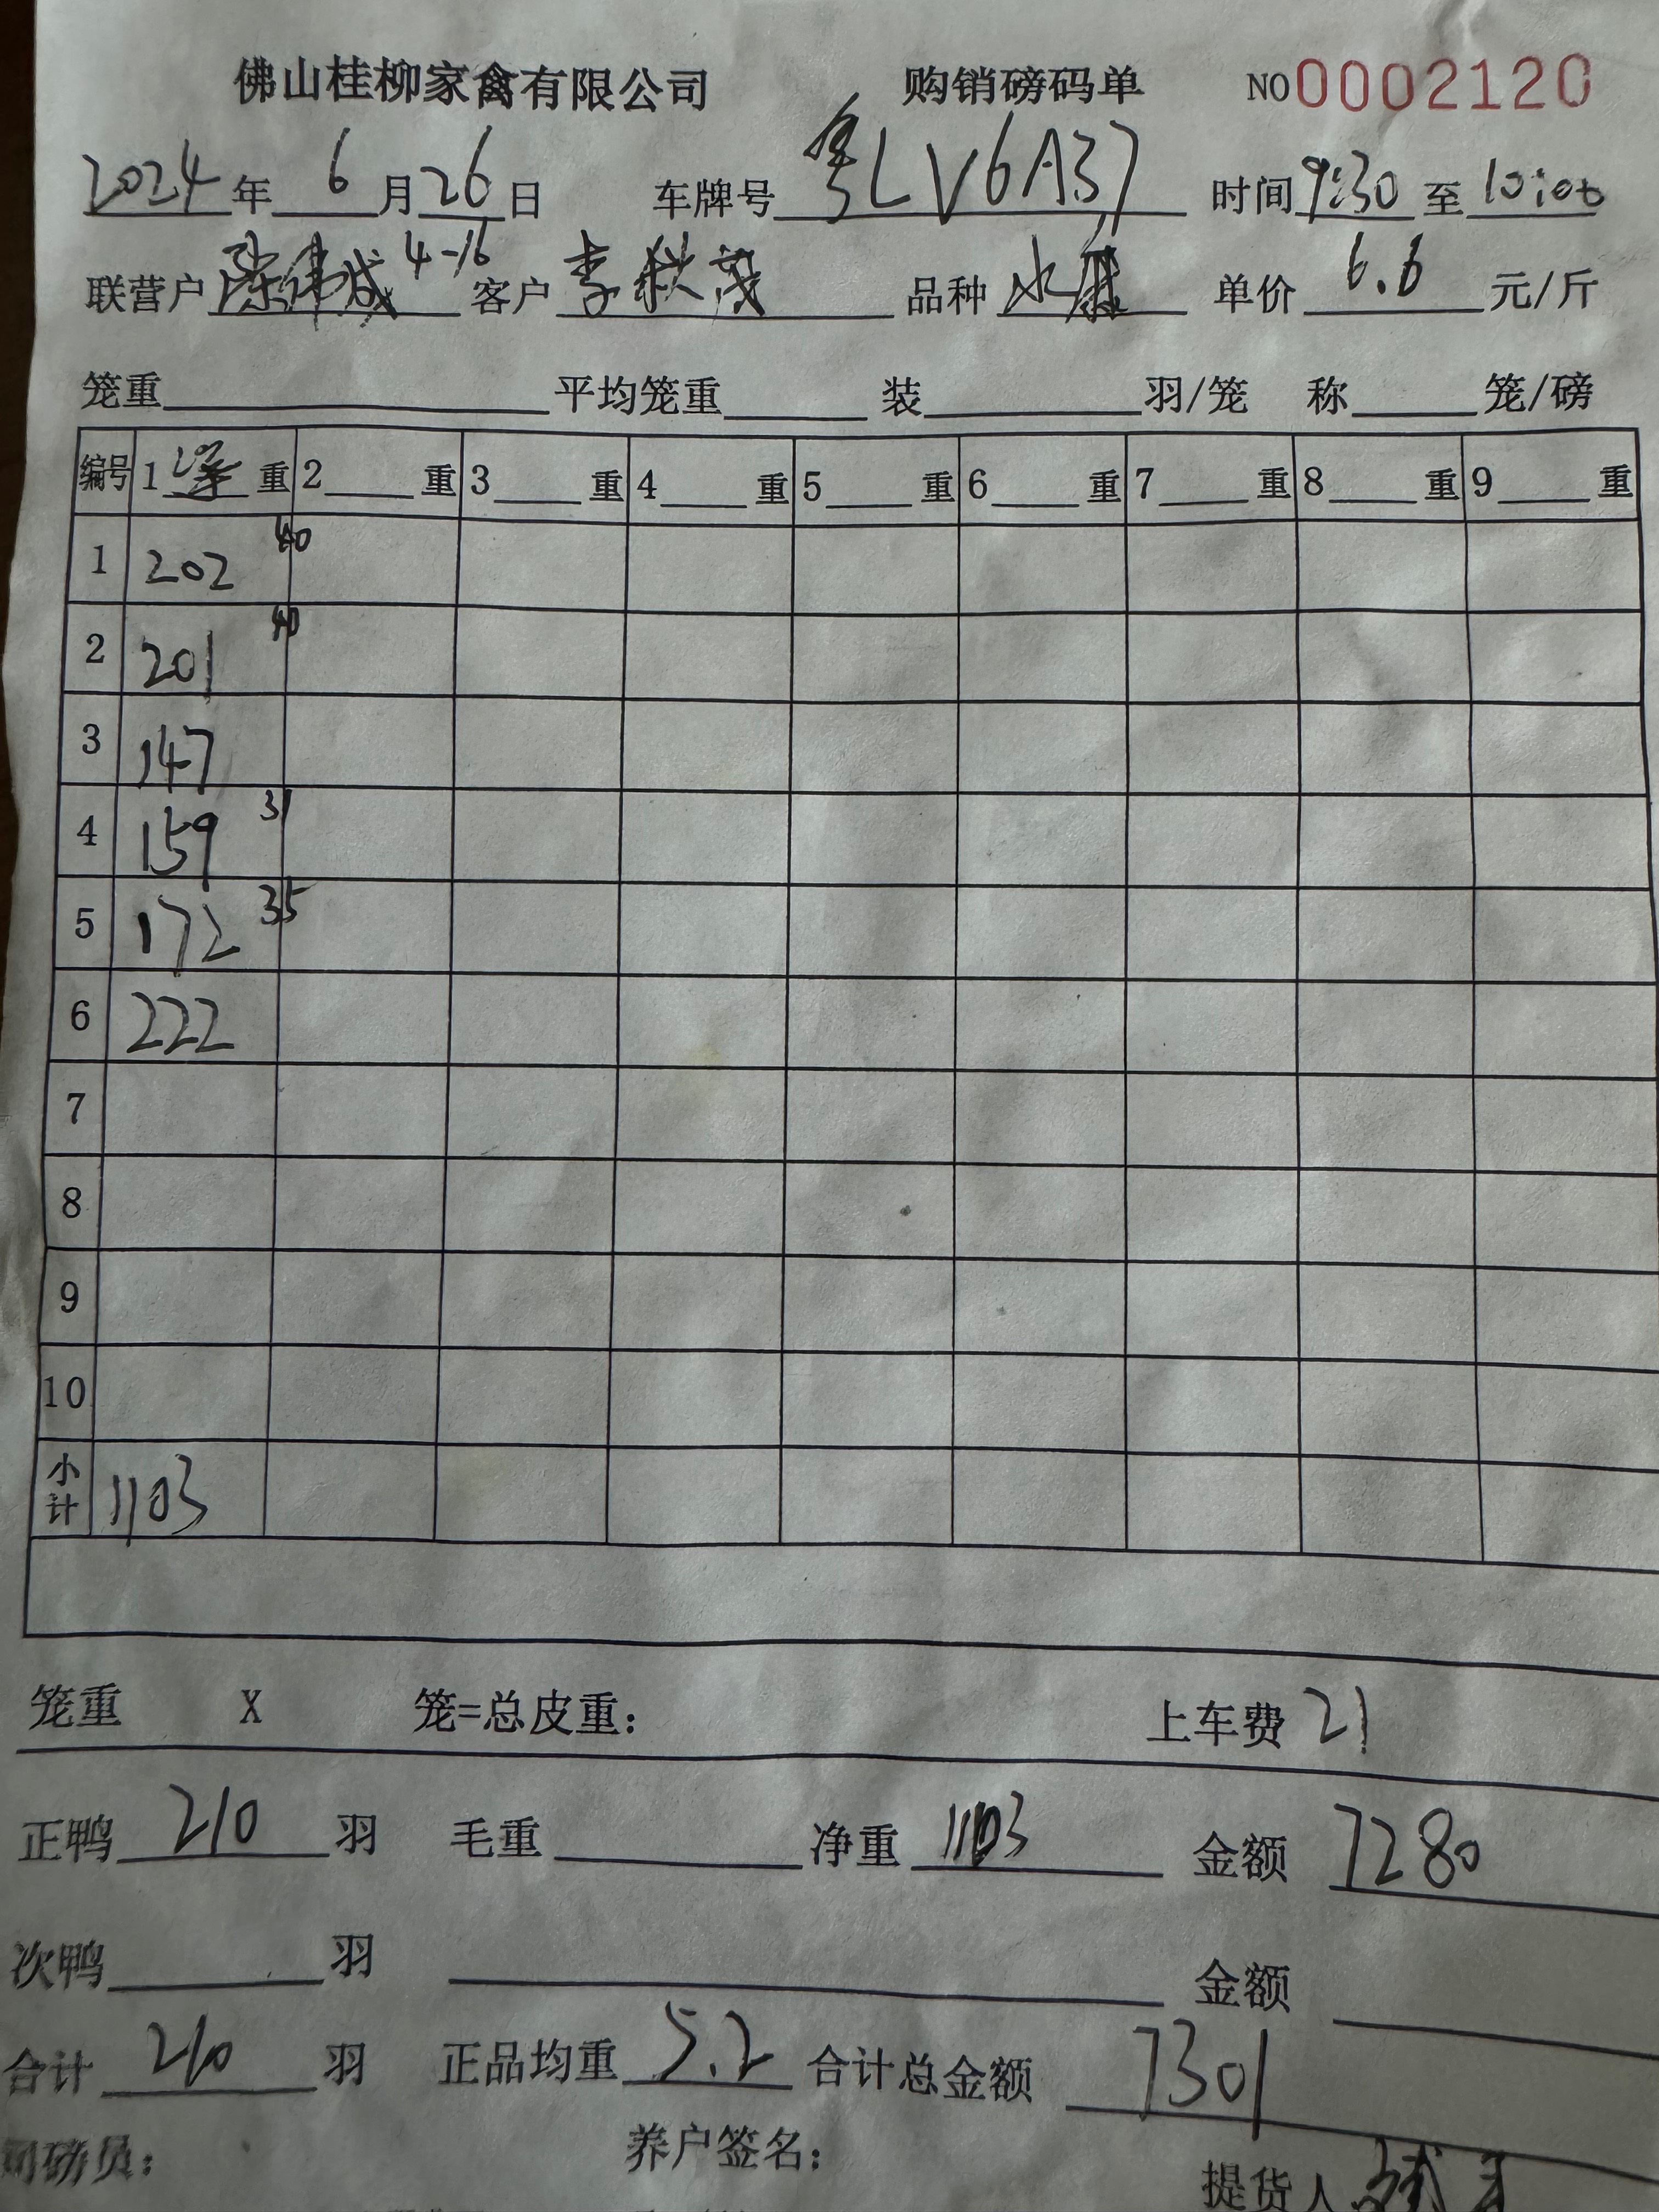 佛山桂柳家禽有限公司 购销磅码单 NO 0002120
2024年 6 月 26 日 车牌号 粤LV6A37 时间 9:30 至 10:00
联营户 陈伟成 4-16 客户 李秋茂 品种 水 单价 6.6 元/斤
笼重 平均笼重 装 羽/笼 称 笼/磅
编号 1 净 重 2 重 3 重 4 重 5 重 6 重 7 重 8 重 9 重
1 202 40
2 201 40
3 147
4 159 31
5 172 35
6 222
7
8
9
10
小计 1103
笼重 X 笼=总皮重: 上车费 21
正鸭 210 羽 毛重 净重 1103 金额 7280
次鸭 羽 金额
合计 210 羽 正品均重 5.2 合计总金额 7301
司磅员: 养户签名: 提货人